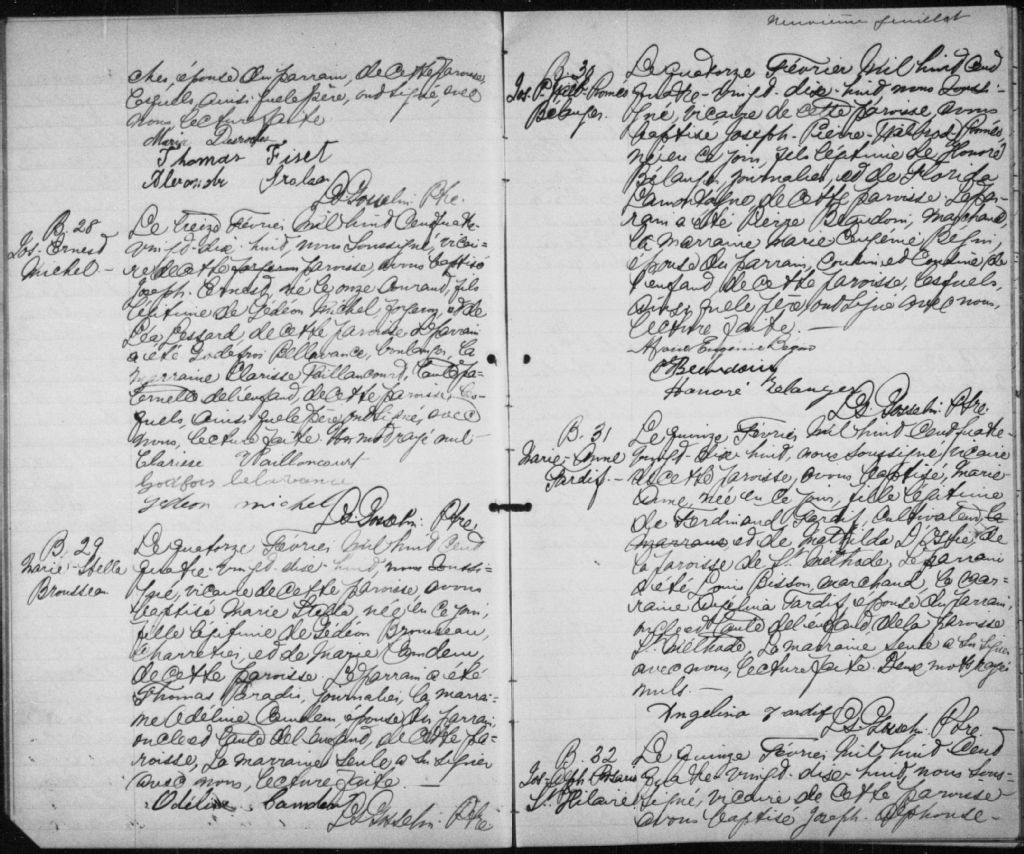 ches, épouse du parrain, de cette paroisse
lesquels, ainsi que le père, ont signé avec
nous. Lecture faite
Maria Desroches
Thomas Fiset
Alexandre
L. S. Gosselin Ptre.
B. 28
Jos. Ernest
Michel
Le treize Février mil huit cent quatre-
vingt-dix-huit, nous soussigné, vicai-
re de cette paroisse, avons baptisé
Joseph Ernest, né le onze courant, fils
légitime de Gédéon Michel, forgeron, et de
Léa Lessard de cette paroisse. Le parrain
a été Godefroi Bellavance, boulanger, la
marraine Clarisse Vaillancourt, tante pa-
ternelle de l'enfant, de cette paroisse, les-
quels, ainsi que le père, ont signé avec
nous, lecture faite. Un mot rayé nul
Clarisse Vailloncourt
Godfois belavance
jédéon michel
L. S. Gosselin Ptre.
B. 29
Marie-Stella
Brousseau
Le quatorze Février mil huit cent
quatre-vingt-dix-huit, nous soussi-
gné, vicaire de cette paroisse avons
baptisé Marie Stella, née en ce jour,
fille légitime de Gédéon Brousseau,
charretier, et de Marie Camden,
de cette paroisse. Le parrain a été
Thomas Paradis, journalier, la marrai-
ne Adeline Camden, épouse du parrain
oncle et tante de l'enfant, de cette pa-
roisse, La marraine seule a su signer
avec nous, lecture faite
Odiline Camden
L. S. Gosselin Ptre
Neuvième feuillet
B. 30
Jos. P. Roméo
Bélanger
Le quatorze Février mil huit cent
quatre-vingt-dix-huit nous soussi-
gné, vicaire de cette paroisse, avons
baptisé Joseph-Pierre Roméo,
né en ce jour, fils légitime de Honoré
Bélanger, journalier, et de Florida
de cette paroisse. Le par-
rain a été Pierre Beaudoin, marchand,
la marraine Marie Eugénie Bégin,
épouse du parrain, cousin et cousine de
l'enfant de cette paroisse, lesquels,
ainsi que le père, ont signé avec nous,
lecture faite.
Marie Eugénie Bégin
P Beaudoin
Honoré Belanger
L. S. Gosselin Ptre.
B. 31
Marie-Anne
Tardif
Le quinze Février mil huit cent quatre-
vingt-dix-huit, nous soussigné vicaire
de cette paroisse, avons baptisé, Marie
Anne, née en ce jour, fille légitime
de Ferdinand Tardif, cultivateur la
marraine et de Mathilda de
la paroisse de St. Méthode, Le parrain
a été Louis Bisson, marchand, la mar-
raine Angelina Tardif, épouse du parrain,
oncle et tante de l'enfant de la paroisse
St. Méthode, La marraine seule a su signer
avec nous, lecture faite. Deux mots rayés
nuls.
Angelina Tardif
L. S. Gosselin Ptre.
B. 32
St. Hilaire
Le quinze Février mil huit cent
quatre-vingt-dix-huit, nous sous-
signé, vicaire de cette paroisse
avons baptisé Joseph-Alphonse-